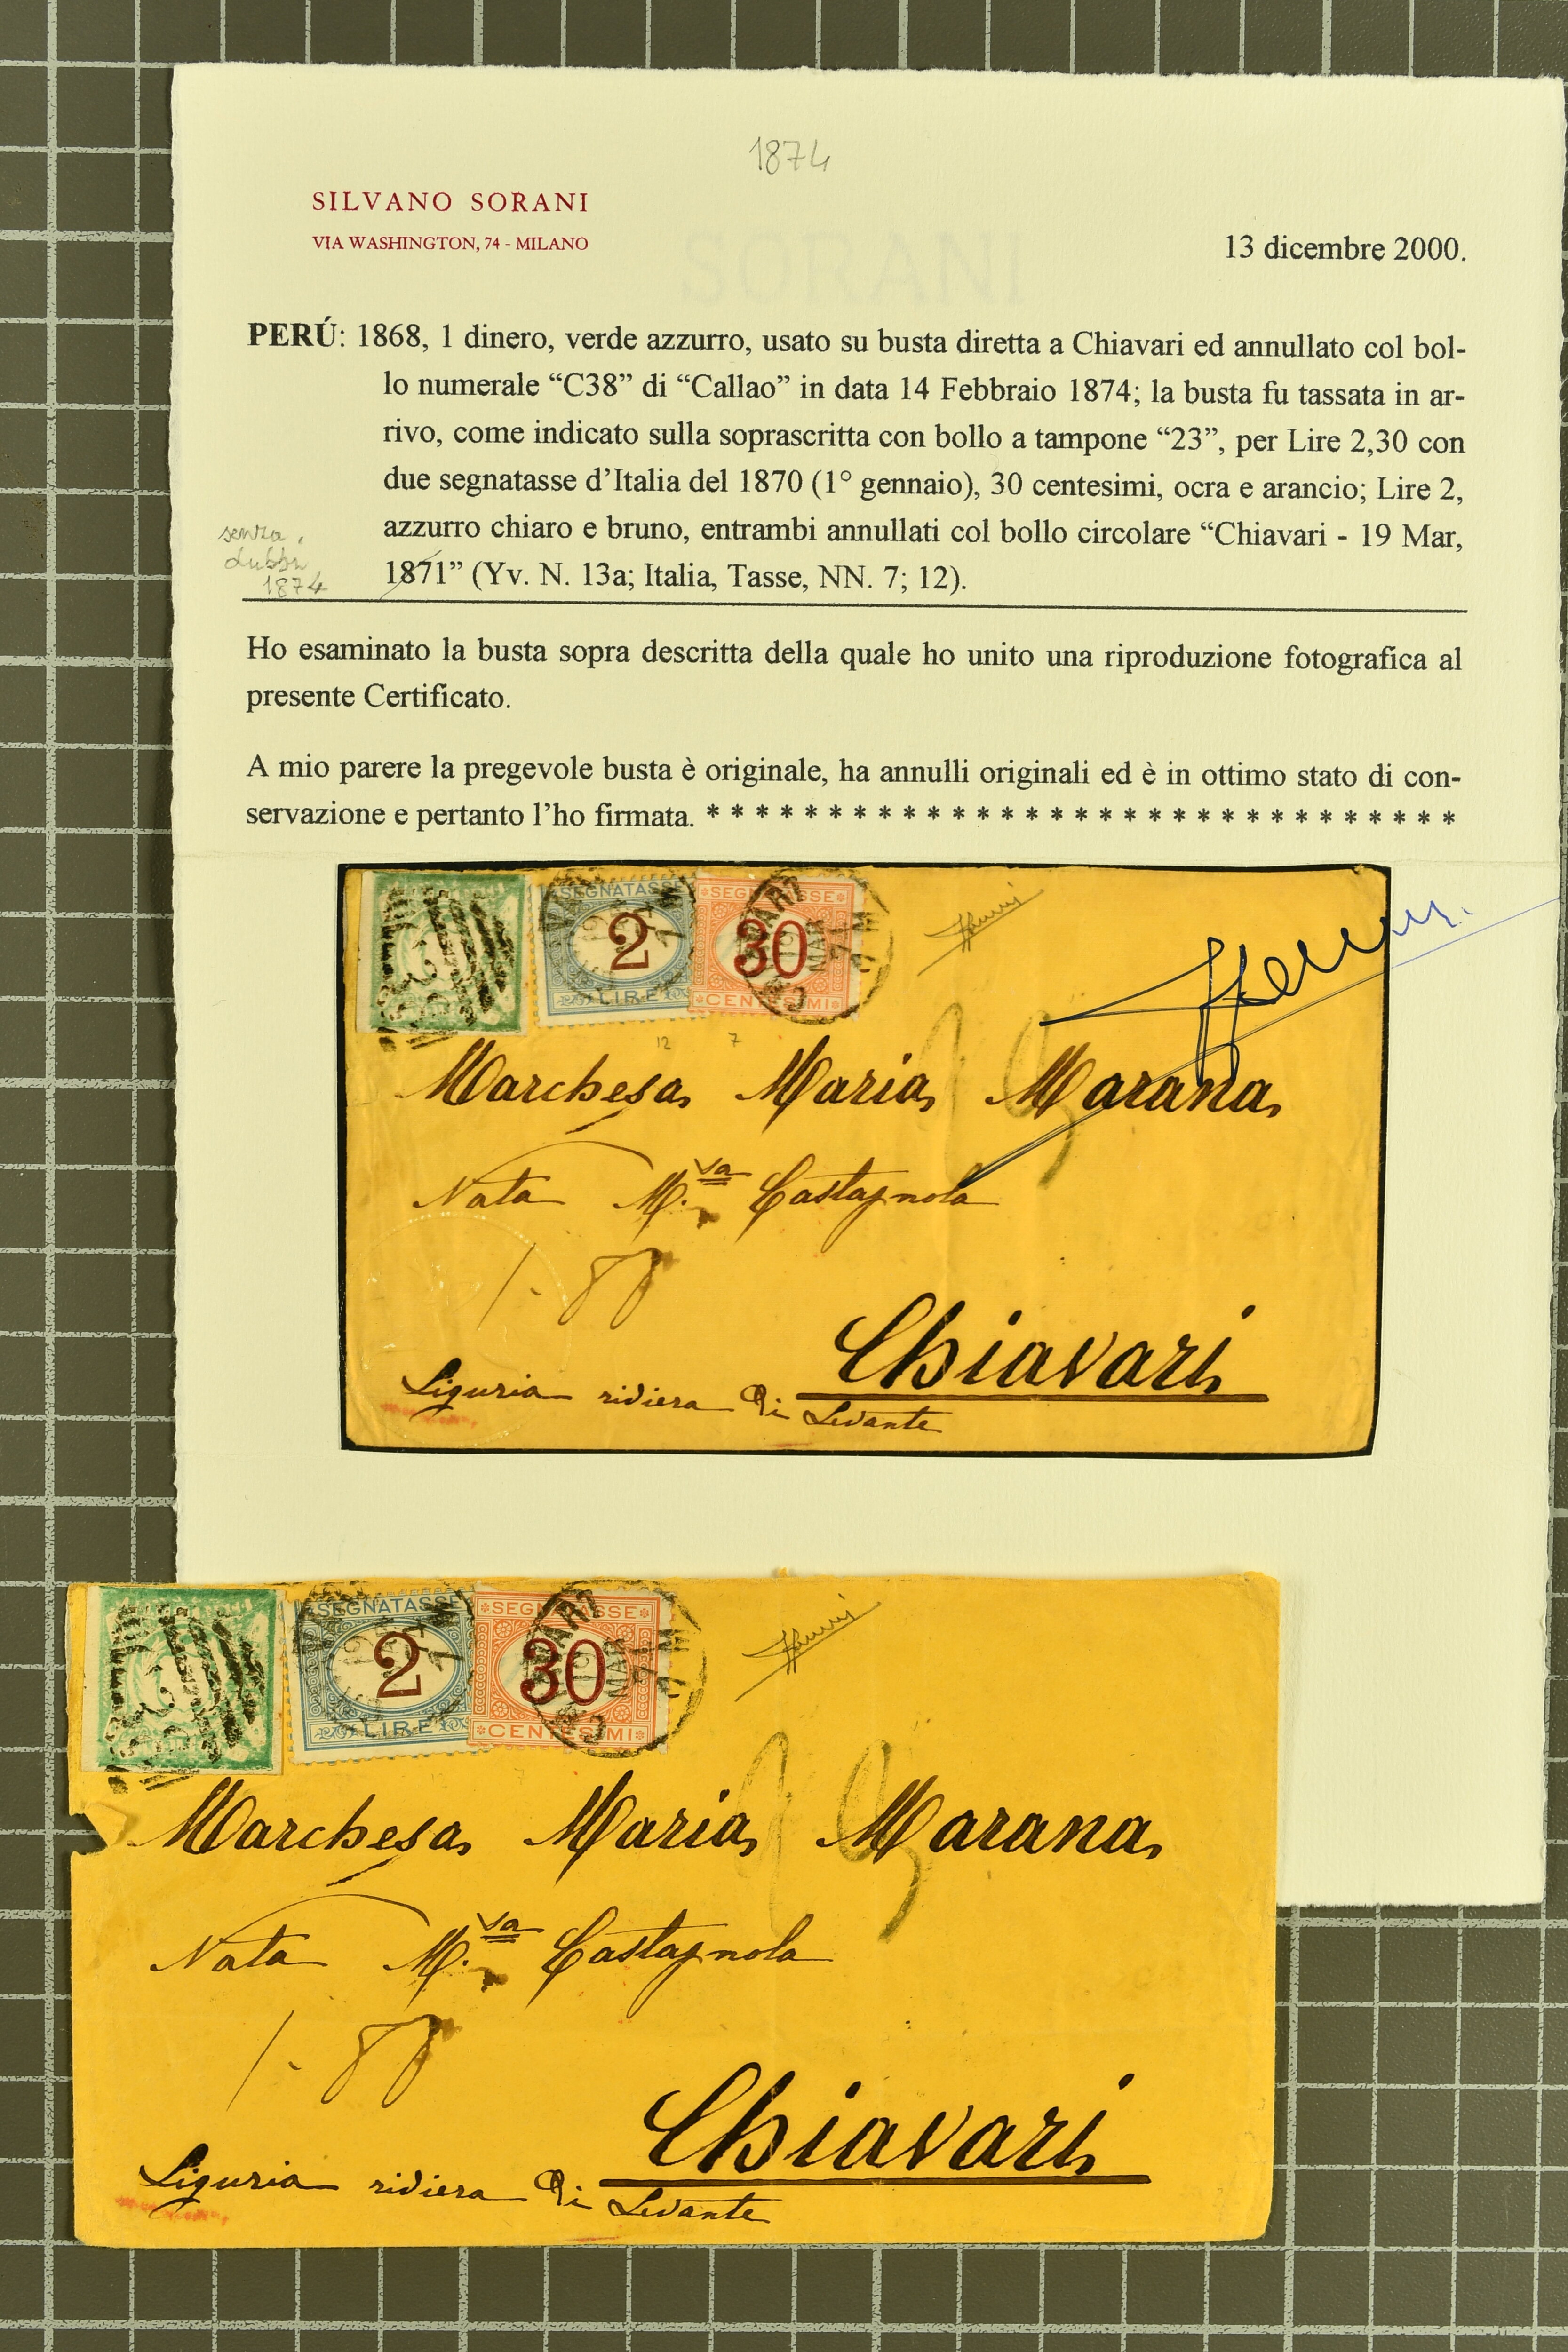 1874
SILVANO SORANI
VIA WASHINGTON, 74 - MILANO
SORANI
13 dicembre 2000.
PERÚ: 1868, 1 dinero, verde azzurro, usato su busta diretta a Chiavari ed annullato col bol-
lo numerale “C38” di “Callao” in data 14 Febbraio 1874; la busta fu tassata in ar-
rivo, come indicato sulla soprascritta con bollo a tampone “23”, per Lire 2,30 con
due segnatasse d’Italia del 1870 (1° gennaio), 30 centesimi, ocra e arancio; Lire 2,
azzurro chiaro e bruno, entrambi annullati col bollo circolare “Chiavari - 19 Mar,
1871” (Yv. N. 13a; Italia, Tasse, NN. 7; 12).
senza
dubbi
1874
Ho esaminato la busta sopra descritta della quale ho unito una riproduzione fotografica al
presente Certificato.
A mio parere la pregevole busta è originale, ha annulli originali ed è in ottimo stato di con-
servazione e pertanto l’ho firmata. * * * * * * * * * * * * * * * * * * * * * * * * * * * * * * *
SEGNATASSE
2
LIRE
SEGNATASSE
30
CENTESIMI
19 MAR 74
12 7
23
Marchesa Maria Marana
Nata M.sa Castagnola
1-88
Chiavari
Liguria riviera Di Levante
SEGNATASSE
2
LIRE
SEGNATASSE
30
CENTESIMI
19 MAR 74
23
Marchesa Maria Marana
Nata M.sa Castagnola
1-88
Chiavari
Liguria riviera Di Levante